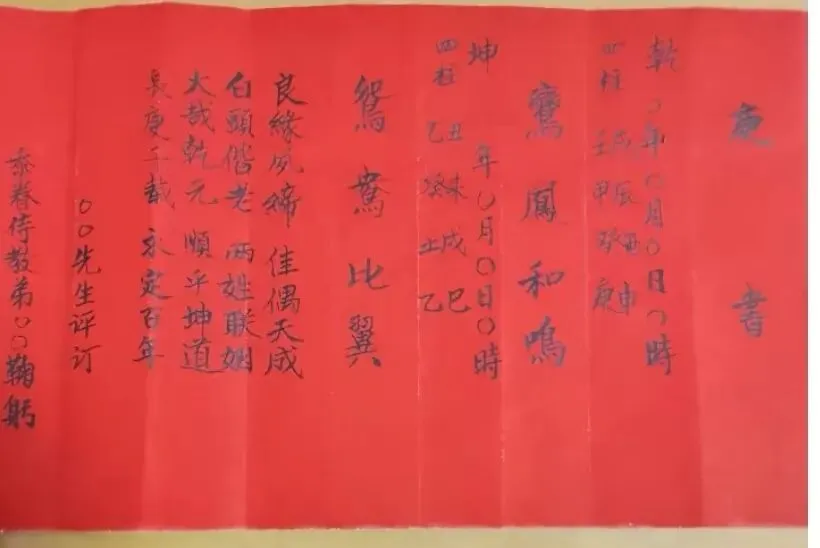 庚書
乾 〇年〇月〇日〇時
四柱 壬戌 甲辰 癸酉 庚申
鸞鳳和鳴
坤 年〇月〇日〇時
四柱 乙丑 癸未 壬戌 乙巳
鴛鴦比翼
良緣夙締 佳偶天成
白頭偕老 两姓联姻
大哉乾元 順乎坤道
長庚千載 永定百年
〇〇先生评订
忝眷侍教弟〇〇鞠躬